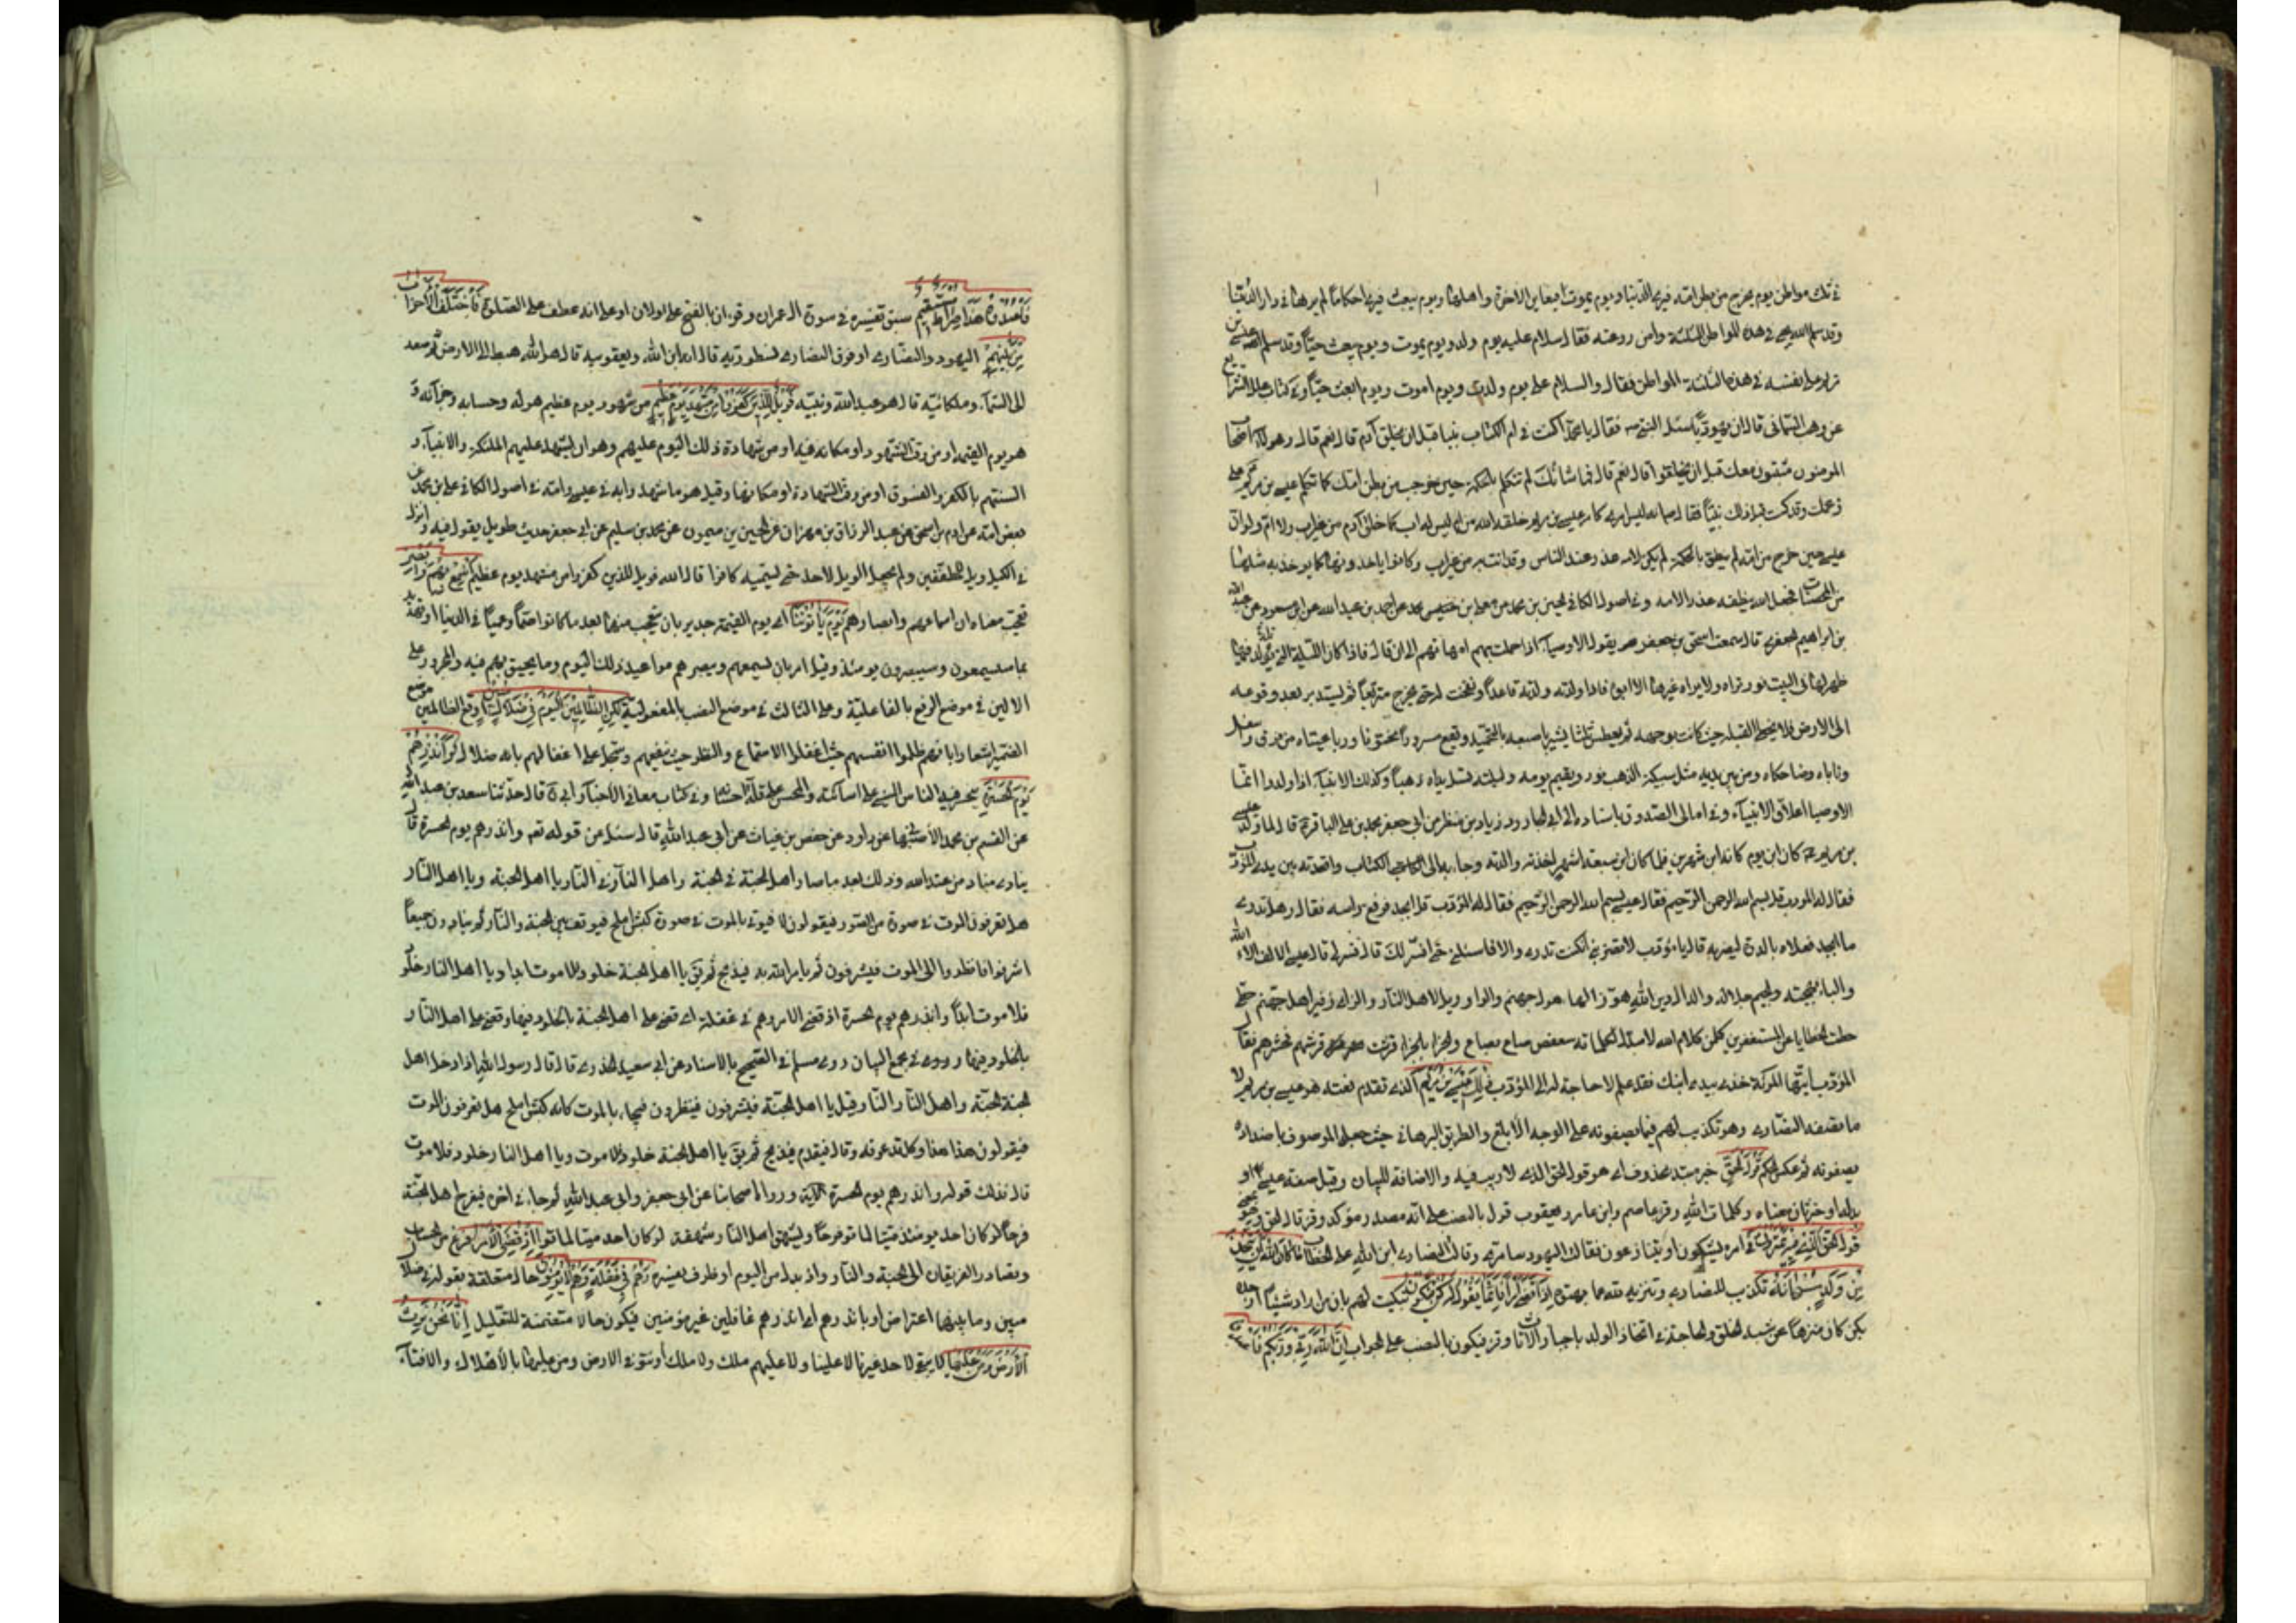 في تلك مواطن يوم يخرج من بطن امه فيرى الدنيا ويوم يموت فيعاين الاخرة واهلها ويوم يبعث فيرى احكاما لم يرها في دار الدنيا
وقد سلم الله يحيى في هذه المواطن الثلثة وامن روعته فقال سلام عليه يوم ولد ويوم يموت ويوم يبعث حيا وقد سلم عيسى بن
مريم على نفسه في هذه الثلثة المواطن فقال والسلام على يوم ولدت ويوم اموت ويوم ابعث حيا وفي كتاب علل الشرايع
عن وهب اليماني قال ان يهوديا سئل النبي ص فقال يا محمد اكنت في ام الكتاب نبيا قبل ان يخلق آدم قال نعم قال وهولاء اصحابك
المومنون مثبتون معك قبل ان يخلقوا قال نعم قال فما شانك لم تتكلم بالحكمة حين خرجت من بطن امك كما تكلم عيسى بن مريم على
زعمك وقد كنت قبل ذلك نبيا فقال انه ليس امري كامر عيسى بن مريم خلقه الله من ام ليس له اب كما خلق آدم من غير اب ولا ام ولو ان
عيسى حين خرج من امه لم ينطق بالحكمة لم يكن لامه عذر عند الناس وقد اتت به من غير اب وكانوا ياخذونها كما يوخذ به مثلها
من المحصنات فجعل الله منطقه عذرا لامه وفي اصول الكافي الحسين بن محمد عن معلى بن محمد عن احمد بن محمد بن عبد الله عن ابن مسعود عن عبد الله
بن ابراهيم الجعفري قال سمعت اسحق بن جعفر يقول الاوصياء اذا حملت بهم امهاتهم الى ان قال فاذا كان الليلة التي تلد فيها
ظهر لها في البيت نور تراه ولا يراه غيرها الا ابوه فاذا ولدته ولدته قاعدا وتفتحت له حتى يخرج متربعا ثم يستدير بعد وقوعه
الى الارض فلا يخطي القبلة حيث كانت بوجهه ثم يعطس ثلثا يشير باصبعه بالتحميد ويقع مسرورا مختونا ورباعيتاه من فوق واسفل
وناباه وضاحكاه ومن بين يديه مثل سبيكة الذهب نور ويقيم يومه وليلته تسيل يداه ذهبا وكذلك الانبياء اذا ولدوا انما
الاوصيا اعلاق الانبياء وفي امالي الصدوق باسناده الى ابي الجارود زياد بن منذر عن ابي جعفر محمد بن علي الباقر ع قال لما ولد عيسى
بن مريم ع كان ابن يوم كانه ابن شهرين فلما كان ابن سبعة اشهر اخذته والدته وجاءت به الى الكتاب واقعدته بين يدي المؤدب
فقال له المودب قل بسم الله الرحمن الرحيم فقال عيسى بسم الله الرحمن الرحيم فقال له المؤدب قل ابجد فرفع راسه فقال وهل تدري
ما ابجد فعلاه بالدرة ليضربه قال يا مؤدب لا تضربني ان كنت تدري والا فاسئلني حتى افسر لك قال فسر لي قال عيسى الالف الاء الله
والباء بهجته والجيم جلال الله والدال دين الله هوز الهاء هول جهنم والواو ويل لاهل النار والزاي زفير اهل جهنم حطي
حطت الخطايا عن المستغفرين كلمن كلام الله لا مبدل لكلماته سعفص صاع بصاع والجزاء بالجزاء قرشت قرشهم فحشرهم فقال
المؤدب ايتها المرئة خذي بيد ابنك فقد علم لا حاجة له الى المؤدب ذلك عيسى بن مريم الذي تقدم نعته هو عيسى بن مريم لا
ما يصفه النصارى وهو تكذيب لهم فيما يصفونه على الوجه الابلغ والطريق البرهاني حيث جعله الموصوف باضداد ما
يصفونه ثم عكس الحكم قول الحق خبر مبتدا محذوف اي هو قول الحق الذي لا ريب فيه والاضافة للبيان وقيل صفة عيسى او
بدله او خبر ثان معناه وكلمات الله وقرء عاصم وابن عامر ويعقوب قول بالنصب على انه مصدر مؤكد وقرء قال الحق وهو بمعنى
قول الحق الذي فيه يمترون في امره يشكون او يتنازعون فقالت اليهود ساحر وقالت النصارى ابن الله على الخطاب ما كان لله ان يتخذ
من ولد سبحانه تكذيب للنصارى وتنزيه لله عما بهتوه اذا قضى امرا فانما يقول له كن فيكون تبكيت لهم بان من اراد شيئا اوجده
بكن كان منزها عن شبه الخلق والحاجة في اتخاذ الولد باحبال الاناث وقرء فيكون بالنصب على الجواب ان الله ربي وربكم
فاعبدوه هذا صراط مستقيم سبق تفسيره في سورة آل عمران وقرء ان بالفتح على ولان او على انه عطف على الصلوة فاختلف الاحزاب
من بينهم اليهود والنصارى او فرق النصارى نسطورية قالوا انه ابن الله ويعقوبية قالوا هو الله هبط الى الارض ثم صعد
الى السماء وملكانية قالوا هو عبد الله ونبيه فويل للذين كفروا من مشهد يوم عظيم من شهود يوم عظيم هوله وحسابه وجزآئه و
هو يوم القيمة او من وقت الشهود او مكانه فيه او من شهادة ذلك اليوم عليهم وهو ان يشهد عليهم الملئكة والانبياء و
السنتهم بالكفر والفسوق او من وقت الشهادة او مكانها وقيل هو ما شهدوا به في عيسى وامه في اصول الكافي علي بن محمد عن
بعض اصحابه عن آدم بن اسحق عن عبد الرزاق بن مهران عن الحسين بن ميمون عن محمد بن سليم عن ابي جعفر حديث طويل يقول فيه وانزل
في الكيل ويل للمطففين ولم يجعل الويل لاحد حتى يسميه كافرا قال الله فويل للذين كفروا من مشهد يوم عظيم اسمع بهم وابصر
تعجب معناه ان اسماعهم وابصارهم يوم يأتوننا اي يوم القيمة جدير بان يتعجب منهما بعد ما كانوا صما وعميا في الدنيا او تهديد
بما سيسمعون وسيبصرون يومئذ وقيل امر بان يسمعهم ويبصرهم مواعيد ذلك اليوم وما يحيق بهم فيه والمجرور على
الاولين في موضع الرفع بالفاعلية وعلى الثالث في موضع النصب بالمفعولية لكن الظالمون اليوم في ضلال مبين اوقع الظالمين موقع
الضمير اشعارا بانهم ظلموا انفسهم حيث اغفلوا الاستماع والنظر حين ينفعهم وسجل على اغفالهم بانه ضلال مبين وانذرهم
يوم الحسرة يتحسر فيه الناس المسيء على اسائته والمحسن على قلة احسانه وفي كتاب معاني الاخبار ابي ره قال حدثنا سعد بن عبد الله
عن القسم بن محمد الاصبهاني عن داود عن حفص بن غياث عن ابي عبد الله قال سئل عن قوله تعالى وانذرهم يوم الحسرة قال
ينادي مناد من عند الله وذلك بعد ما صار اهل الجنة في الجنة واهل النار في النار يا اهل الجنة ويا اهل النار
هل تعرفون الموت في صورة من الصور فيقولون لا فيؤتى بالموت في صورة كبش املح فيوقف بين الجنة والنار ثم ينادون جميعا
اشرفوا فانظروا الى الموت فيشرفون ثم يامر الله به فيذبح ثم يقال يا اهل الجنة خلود فلا موت ابدا ويا اهل النار خلود
فلا موت ابدا وانذرهم يوم الحسرة اذ قضي الامر وهم في غفلة اي قضي على اهل الجنة بالخلود فيها وقضي على اهل النار
بالخلود فيها وروى في مجمع البيان روى مسلم في الصحيح بالاسناد عن ابي سعيد الخدري قال قال رسول الله اذا دخل اهل
الجنة الجنة واهل النار النار قيل يا اهل الجنة فيشرفون فينظرون فيجاء بالموت كانه كبش املح هل تعرفون الموت
فيقولون هذا هذا وكل قد عرفه وقال فيقدم فيذبح ثم يقال يا اهل الجنة خلود فلا موت ويا اهل النار خلود فلا موت
قال فذلك قوله وانذرهم يوم الحسرة الآية وروى اصحابنا عن ابي جعفر وابي عبد الله ثم جاء في اخره فيفرح اهل الجنة
فرحا لو كان احد يومئذ ميتا لماتوا فرحا ويشهق اهل النار شهقة لو كان احد ميتا لماتوا اذ قضي الامر فرغ من الحساب
وتصادر الفريقان الى الجنة والنار واذ بدل من اليوم او ظرف للحسرة وهم في غفلة وهم لا يؤمنون حال متعلقة بقوله في ضلال
مبين وما بينهما اعتراض او بانذرهم اي انذرهم غافلين غير مؤمنين فيكون حالا متضمنة للتعليل انا نحن نرث
الارض ومن عليها لا يبقى لاحد غيرنا لا علينا ولا عليهم ملك ولا ملك او نتوفى الارض ومن عليها بالاهلاك والافناء